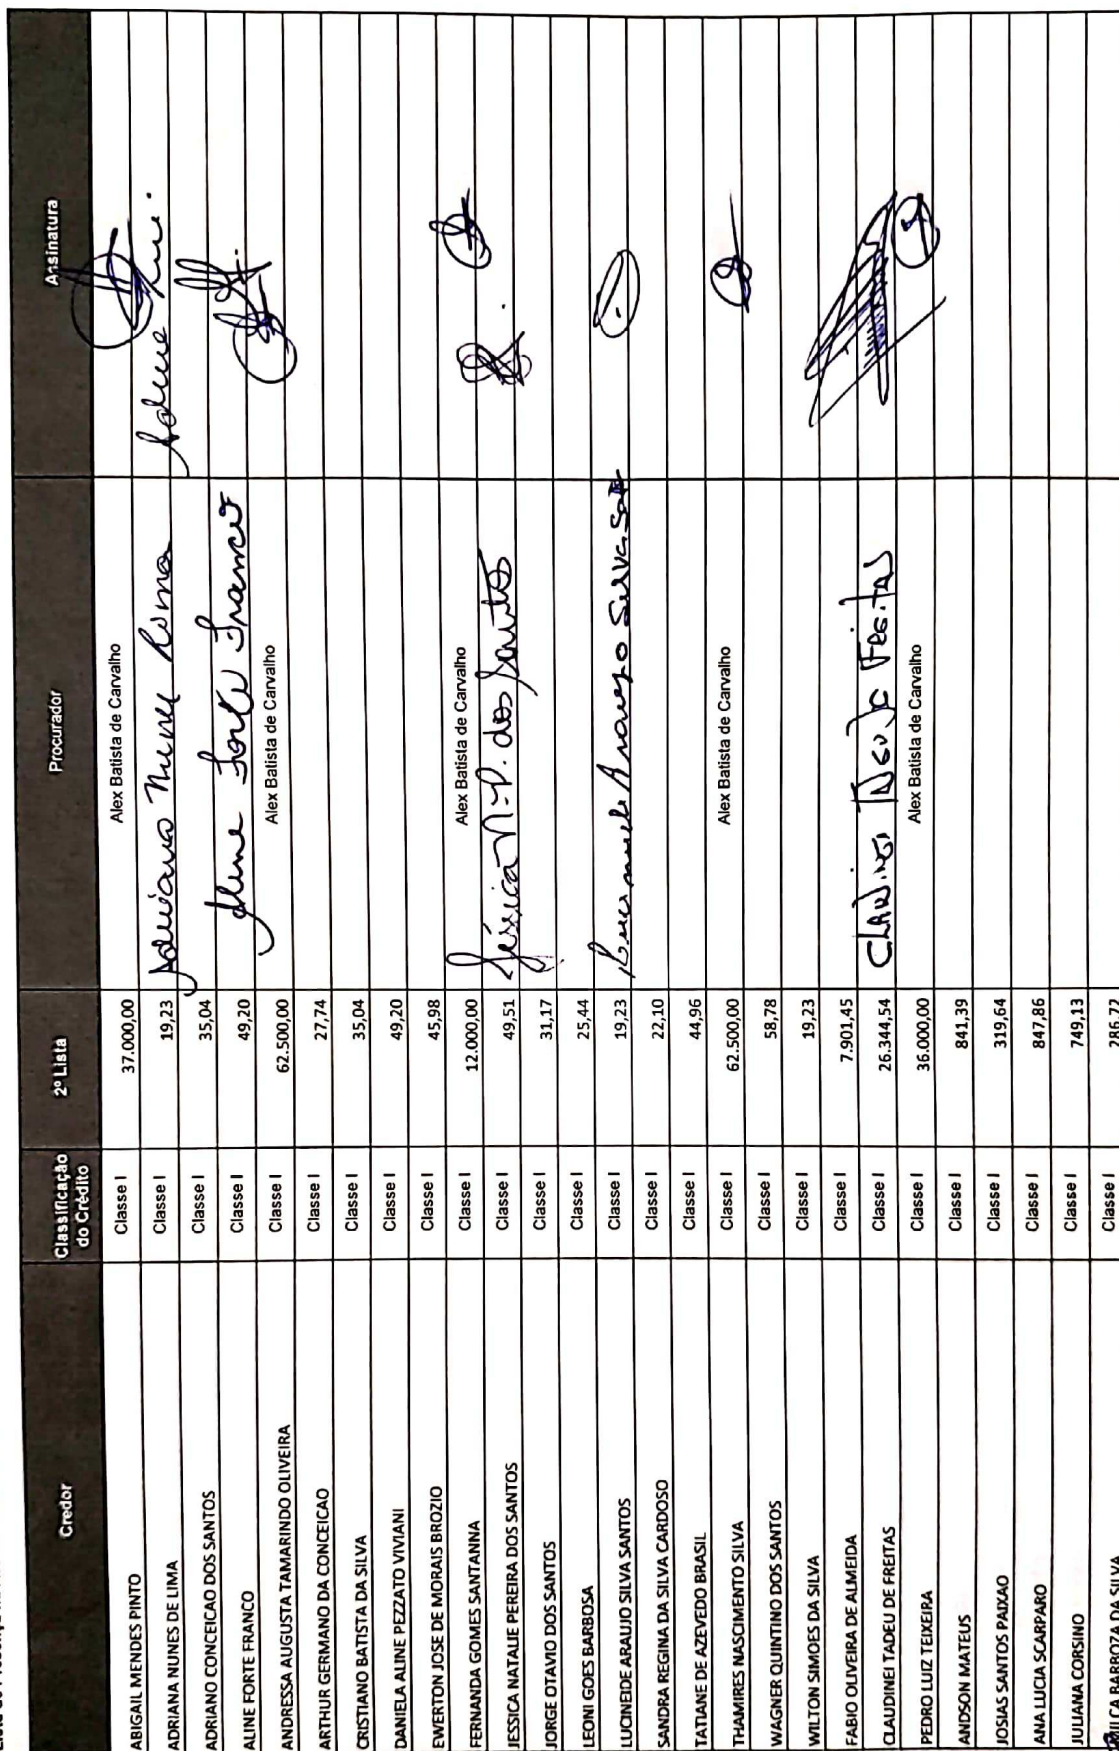 Credor Classificação do Crédito 2º Lista Procurador Assinatura
ABIGAIL MENDES PINTO Classe I 37.000,00 Alex Batista de Carvalho
ADRIANA NUNES DE LIMA Classe I 19,23 Adriana Nunes Lima
ADRIANO CONCEICAO DOS SANTOS Classe I 35,04
ALINE FORTE FRANCO Classe I 49,20 Aline Forte Franco
ANDRESSA AUGUSTA TAMARINDO OLIVEIRA Classe I 62.500,00 Alex Batista de Carvalho
ARTHUR GERMANO DA CONCEICAO Classe I 27,74
CRISTIANO BATISTA DA SILVA Classe I 35,04
DANIELA ALINE PEZZATO VIVIANI Classe I 49,20
EWERTON JOSE DE MORAIS BROZIO Classe I 45,98
FERNANDA GOMES SANTANNA Classe I 12.000,00 Alex Batista de Carvalho
JESSICA NATALIE PEREIRA DOS SANTOS Classe I 49,51 Jéssica N. P. dos Santos
JORGE OTAVIO DOS SANTOS Classe I 31,17
LEONI GOES BARBOSA Classe I 25,44
LUCINEIDE ARAUJO SILVA SANTOS Classe I 19,23 Araujo Silva
SANDRA REGINA DA SILVA CARDOSO Classe I 22,10
TATIANE DE AZEVEDO BRASIL Classe I 44,96
THAMIRES NASCIMENTO SILVA Classe I 62.500,00 Alex Batista de Carvalho
WAGNER QUINTINO DOS SANTOS Classe I 58,78
WILTON SIMOES DA SILVA Classe I 19,23
FABIO OLIVEIRA DE ALMEIDA Classe I 7.901,45
CLAUDINEI TADEU DE FREITAS Classe I 26.344,54 Claudinei Tadeu de Freitas
PEDRO LUIZ TEIXEIRA Classe I 36.000,00 Alex Batista de Carvalho
ANDSON MATEUS Classe I 841,39
JOSIAS SANTOS PAIXAO Classe I 319,64
ANA LUCIA SCARPARO Classe I 847,86
JULIANA CORSINO Classe I 749,13
BARBOZA DA SILVA Classe I 286,72